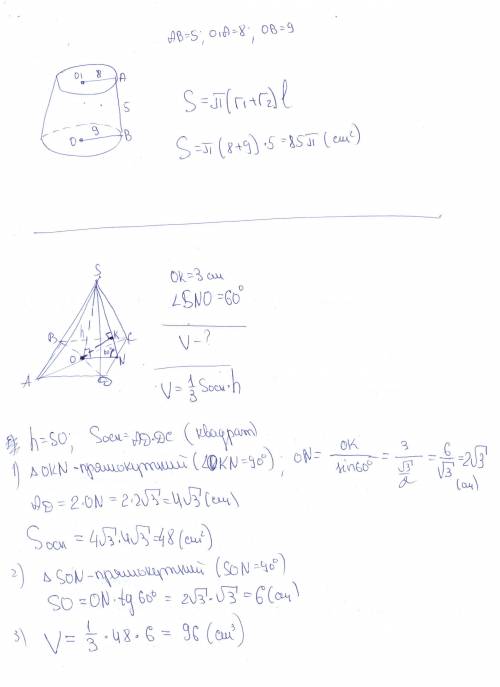 AB=5; O₁A=8; OB=9
O₁ 8 A
5
O 9 B
S=π(r₁+r₂)l
S=π(8+9)·5=85π (cm²)
S
B K C
O N
A D
OK=3 см
∠SNO=60°
V-?
V=1/3 Sосн·h
h=SO; Sосн=AD·DC (квадрат)
1) △OKN-прямокутний (∠OKN=90°); ON= OK/sin60° = 3/(√3/2) = 6/√3 =2√3 (см)
AD=2·ON=2·2√3=4√3 (см)
Sосн=4√3·4√3=48 (см²)
2) △SON-прямокутний (SON=90°)
SO=ON·tg60°=2√3·√3=6 (см)
3) V= 1/3 · 48 · 6 = 96 (см³)